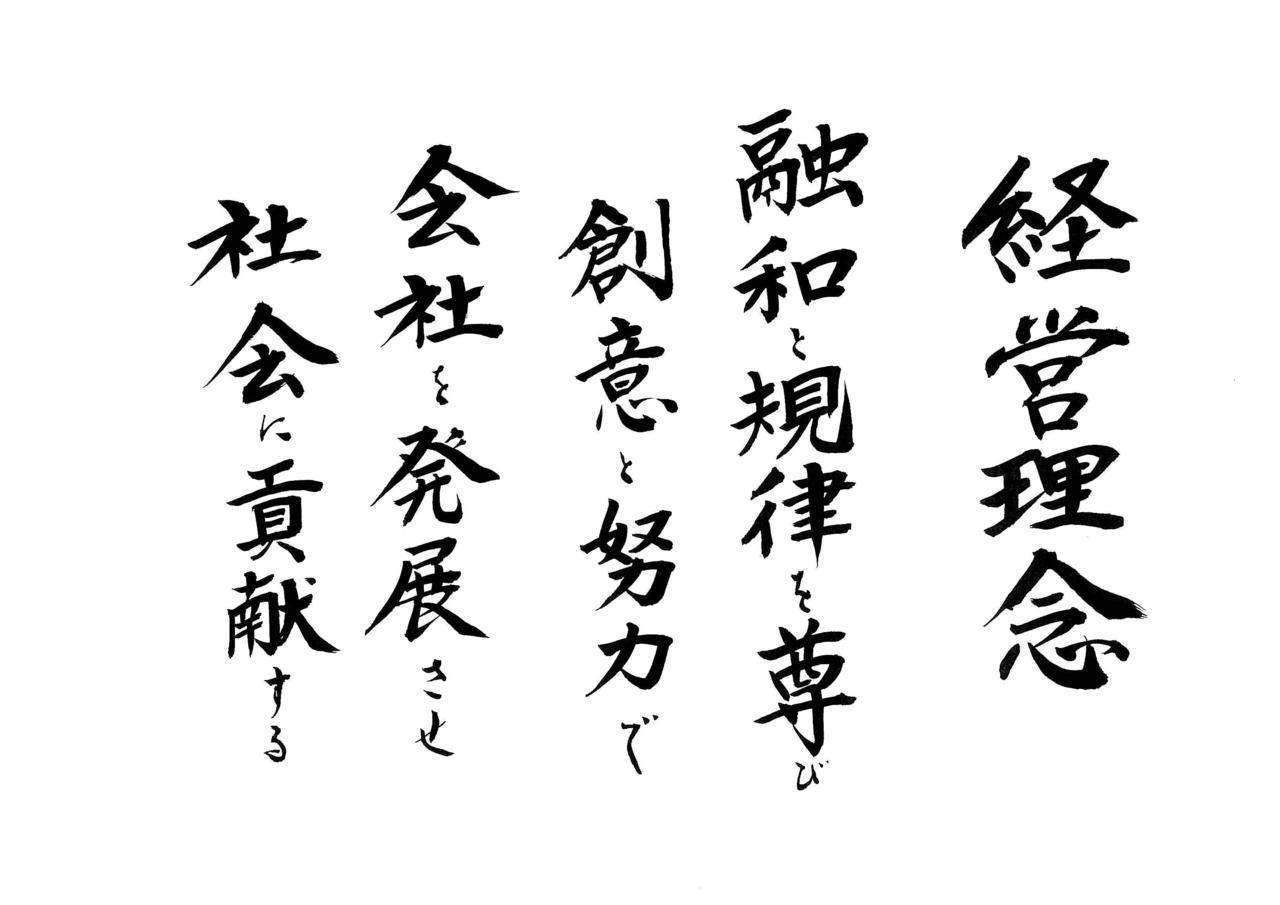 経営理念
融和と規律を尊び
創意と努力で
会社を発展させ
社会に貢献する